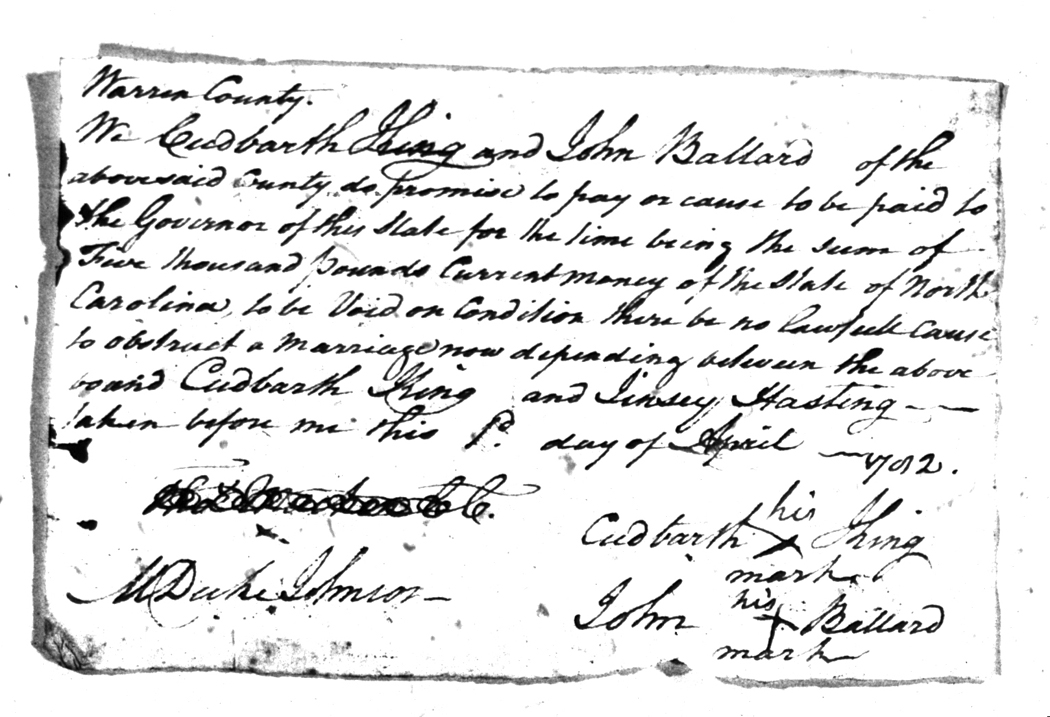 Warren County.
We Cudbarth King and John Ballard of the
abovesaid County do promise to pay or cause to be paid to
the Governor of this State for the time being the sum of
Five thousand pounds Current money of the State of North
Carolina, to be Void on Condition there be no lawfull Cause
to obstruct a Marriage now depending between the above
bound Cudbarth King and Jinsey Hasting
taken before me this 1st. day of April 1782.
C.
Cudbarth his King
mark
M Duke Johnson
John his Ballard
mark